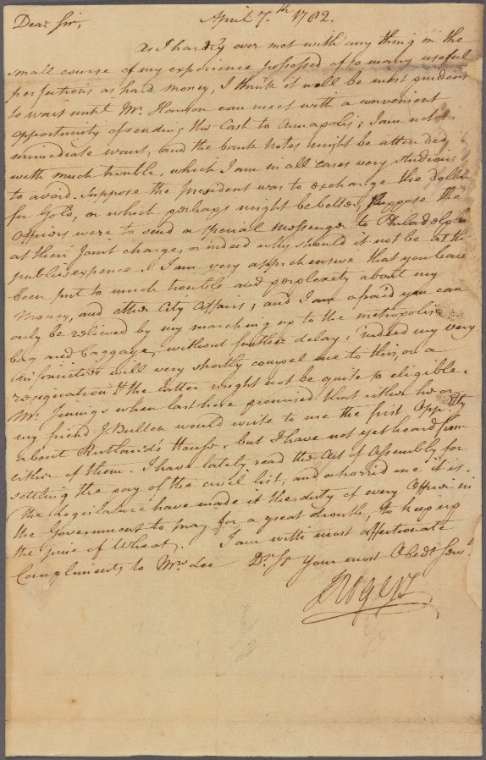 Dear Sir, April 7.th 1782.
As I hardly ever met with any thing in the
small course of my experience possessed of so many useful
perfections as hard money, I think it will be most prudent
to wait until Mr. Hanson can meet with a convenient
opportunity of sending this Cash to Annapolis; I am not in
immediate want, and the bank notes might be attended
with much trouble, which I am in all cases very studious
to avoid. Suppose the President was to exchange the dollars
for Gold, or which perhaps might be better, Suppose the
Officers were to send a special messenger to Philadelphia
at their Joint charge, or indeed why should it not be at the
public expence. I am very apprehensive that you have
been put to much trouble and perplexity about my
Money, and other City Affairs; and I am afraid you can
only be relieved by my marching up to the metropolis
bag and baggage, without further delay; indeed my very
infirmities will very shortly counsel me to this, or a
resignation & the latter might not be quite so eligible.
Mr. Jennings when last here promised that either he or
my friend J. Bullen would write to me the first Opp.ty
about Rutland's House, but I have not yet heard from
either of them. I have lately read the Act of Assembly for
settling the pay of the civil list, and a horrid one it is.
The Legislature have made it the duty of every Officer in
the Government to pray for a great drouth, to keep up
the price of Wheat. I am with most affectionate
Compliments to Mrs. Lee Dr. Sr. Your most Obedt Servt.
J Rogers